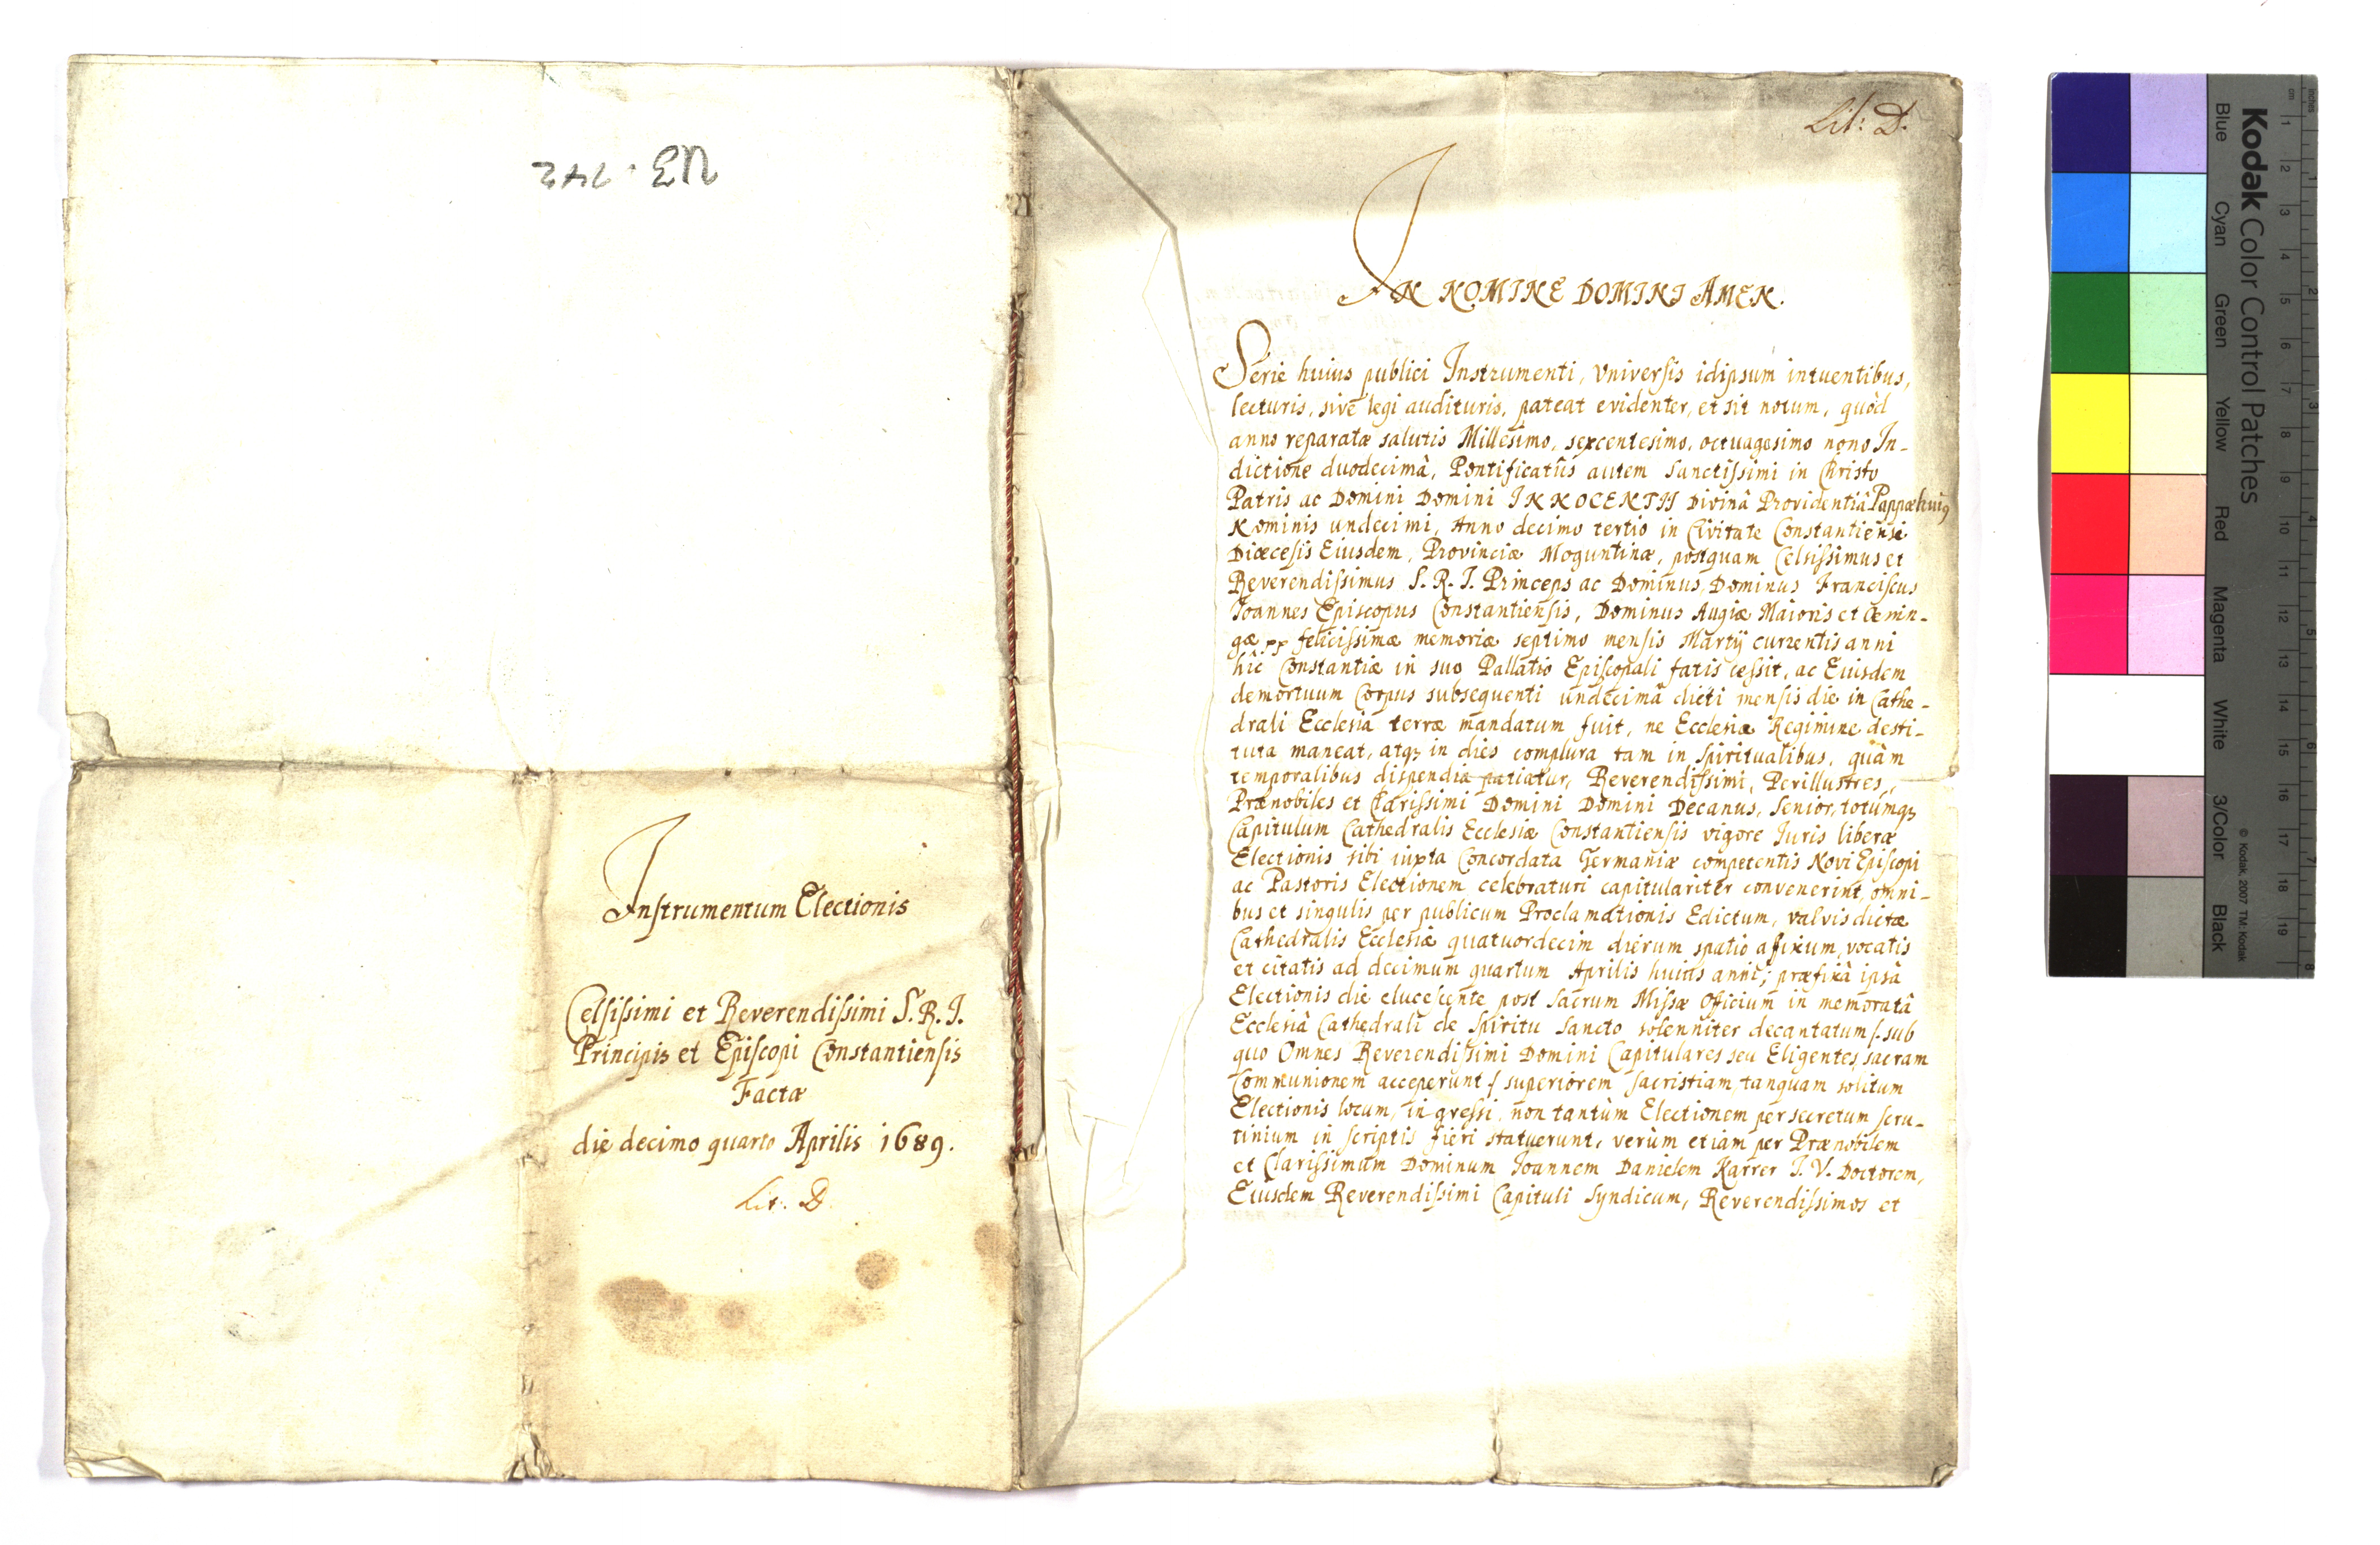 U3 · 742
Instrumentum Electionis
Celsissimi et Reverendissimi S. R. I.
Principis et Episcopi Constantiensis
Factæ
die decimo quarto Aprilis 1689.
Lit: D.
Lit: D.
IN NOMINE DOMINI AMEN.
Serie huius publici Instrumenti, Universis idipsum intuentibus,
lecturis, sivè legi audituris, pateat evidenter, et sit notum, quòd
anno reparatæ salutis Millesimo, sexcentesimo, octuagesimo nono In-
dictione duodecimâ, Pontificatûs autem Sanctissimi in Christo
Patris ac Domini Domini INNOCENTII Divinâ Providentiâ Pappæ huiꝰ
Nominis undecimi, Anno decimo tertio in Civitate Constantiensi
Diœcesis Eiusdem, Provinciæ Moguntinæ, postquam Celsissimus et
Reverendissimus S. R. I. Princeps ac Dominus, Dominus Franciscus
Ioannes Episcopus Constantiensis, Dominus Augiæ Maioris et Œnin-
gæ pp felicissimæ memoriæ septimo mensis Martÿ currentis anni
hîc Constantiæ in suo Pallatio Episcopali fatis cessit, ac Eiusdem
demortuum Corpus subsequenti undecimâ dicti mensis die in Cathe-
drali Ecclesiâ terræ mandatum fuit, ne Ecclesia Regimine desti-
tuta maneat, atqꝫ in dies complura tam in Spiritualibus, quàm
temporalibus dispendia patiatur, Reverendissimi, Perillustres,
Prænobiles et Clarissimi Domini Domini Decanus, Senior, totumqꝫ
Capitulum Cathedralis Ecclesiæ Constantiensis vigore Iuris liberæ
Electionis sibi iuxta Concordata Germaniæ competentis Novi Episcopi
ac Pastoris Electionem celebraturi capitulariter convenerint, omni-
bus et singulis per publicum Proclamationis Edictum, valvis dictæ
Cathedralis Ecclesiæ quatuordecim dierum spatio affixum, vocatis
et citatis ad decimum quartum Aprilis huius anni; præfixâ ipsâ
Electionis die elucescente post Sacrum Missæ Officium in memoratâ
Ecclesiâ Cathedrali de Spiritu Sancto solenniter decantatum /: sub
quo Omnes Reverendissimi Domini Capitulares seu Eligentes sacram
Communionem acceperunt :/ superiorem Sacristiam tanquam solitum
Electionis locum, ingressi, non tantùm Electionem per secretum scru-
tinium in scriptis fieri statuerunt, verùm etiam per Prænobilem
et Clarissimum Dominum Ioannem Danielem Karrer I. V. Doctorem,
Eiusdem Reverendissimi Capituli Syndicum, Reverendissimos et
Kodak Color Control Patches
Blue Cyan Green Yellow Red Magenta White 3/Color Black
© Kodak, 2007 TM: Kodak
inches 1 2 3 4 5 6 7 8
cm 1 2 3 4 5 6 7 8 9 10 11 12 13 14 15 16 17 18 19